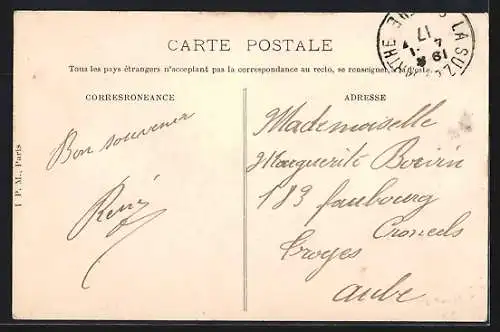 CARTE POSTALE
Tous les pays étrangers n'acceptant pas la correspondance au recto, se renseigner à la Poste.
CORRESRONEANCE
ADRESSE
Bon souvenir
René
Mademoiselle
Marguerite Boivin
183 faubourg
Croncels
Troyes
Aube
I P. M., Paris
LA SUZE
17